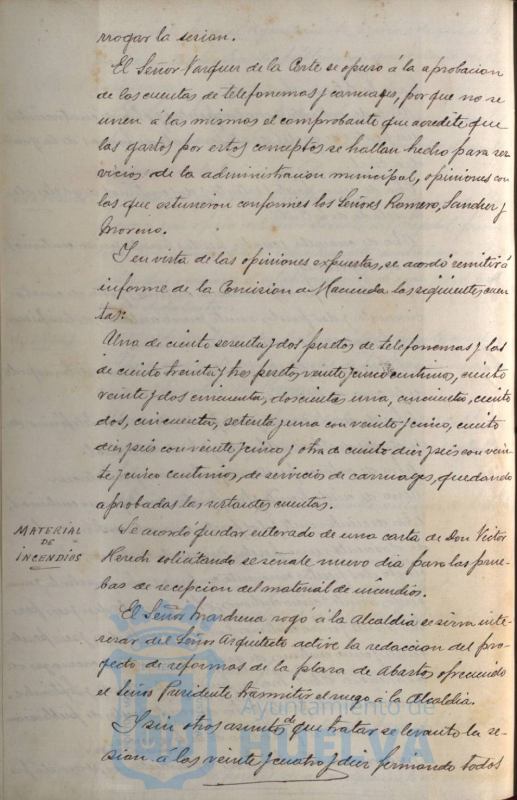 rrogar la sesion.
El Señor Vazquez de la Corte se opuso á la aprobacion
de las cuentas de telefonemas y carruages, por que no se
unen a las mismas el comprobante que acredite que
los gastos por estos conceptos se hallan hecho para ser
vicios de la administracion municipal, opiniones con
las que estuvieron conformes los Señores Romero, Sanchez y
Moreno.
Y en vista de las opiniones expuestas, se acordó remitir á
informe de la Comision de Hacienda las siguientes cuen
tas:
Una de ciento sesenta y dos pesetas de telefonemas y las
de ciento treinta y tres pesetas veinte y cinco centimos, ciento
veinte y dos cincuenta, doscientas una, cincuenta, ciento
dos, cincuenta, setenta y una con veinte y cinco, ciento
diez y seis con veinte y cinco y otra de ciento diez y seis con vein
te y cinco centimos, de servicios de carruages, quedando
aprobadas las restantes cuentas.
MATERIAL
DE
INCENDIOS
Se acordó quedar enterado de una carta de Don Victor
solicitando se señale nuevo dia para las prue
bas de recepcion del material de incendios.
El Señor Marchena rogó á la Alcaldia se sirva inte
resar del Señor Arquitecto active la redaccion del pro
yecto de reformas de la plaza de Abastos ofreciendo
el Señor Presidente transmitir el ruego á la Alcaldia.
Y sin otros asuntos de que tratar se levantó la se
sion á las veinte y cuatro y diez firmando todos
Ayuntamiento de
HUELVA